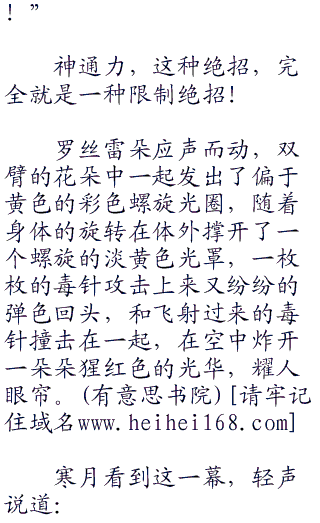 ！”
神通力，这种绝招，完
全就是一种限制绝招！
罗丝雷朵应声而动，双
臂的花朵中一起发出了偏于
黄色的彩色螺旋光圈，随着
身体的旋转在体外撑开了一
个螺旋的淡黄色光罩，一枚
枚的毒针攻击上来又纷纷的
弹色回头，和飞射过来的毒
针撞击在一起，在空中炸开
一朵朵猩红色的光华，耀人
眼帘。(有意思书院)[请牢记
住域名www.heihei168.com]
寒月看到这一幕，轻声
说道：